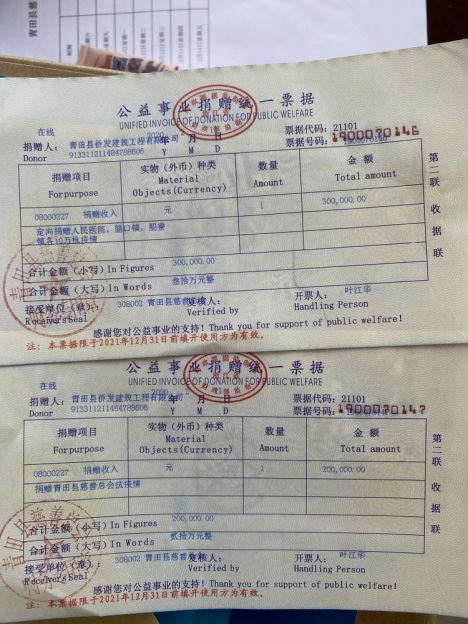 公益事业捐赠统一票据
UNIFIED INVOICE OF DONATION FOR PUBLIC WELFARE
在线
2020 年 月 日
Y M D
票据代码：21101
捐赠人：青田县侨发建筑工程有限公司
Donor 913311211484788606
票据号码：1900070146
捐赠项目 实物（外币）种类 数量 金额
For purpose Material Objects(Currency) Amount Total amount
08000227 捐赠收入 元 1 300,000.00
定向捐赠人民医院，腊口镇，船寮
镇各10万抗疫情
合计金额（小写）In Figures 300,000.00
合计金额（大写）In Words 叁拾万元整
接受单位（章）：308002 青田县慈善 复核人： 开票人：叶江华
Receiver's Seal Verified by Handling Person
感谢您对公益事业的支持！Thank you for support of public welfare!
注：本票据限于2021年12月31日前填开使用方为有效。
第二联 收据联
公益事业捐赠统一票据
UNIFIED INVOICE OF DONATION FOR PUBLIC WELFARE
在线
2020 年 月 日
Y M D
票据代码：21101
捐赠人：青田县侨发建筑工程有限公司
Donor 913311211484788606
票据号码：1900070147
捐赠项目 实物（外币）种类 数量 金额
For purpose Material Objects(Currency) Amount Total amount
08000227 捐赠收入 元 1 200,000.00
捐赠青田县慈善总会抗疫情
合计金额（小写）In Figures 200,000.00
合计金额（大写）In Words 贰拾万元整
接受单位（章）：308002 青田县慈善 复核人： 开票人：叶江华
Receiver's Seal Verified by Handling Person
感谢您对公益事业的支持！Thank you for support of public welfare!
注：本票据限于2021年12月31日前填开使用方为有效。
第二联 收据联